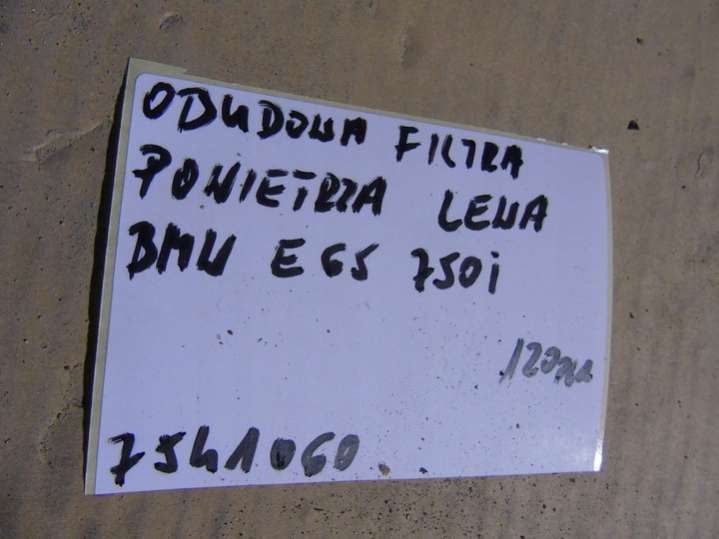 OBUDOWA FILTRA
POWIETRZA LEWA
BMW E65 750i
120
7541060